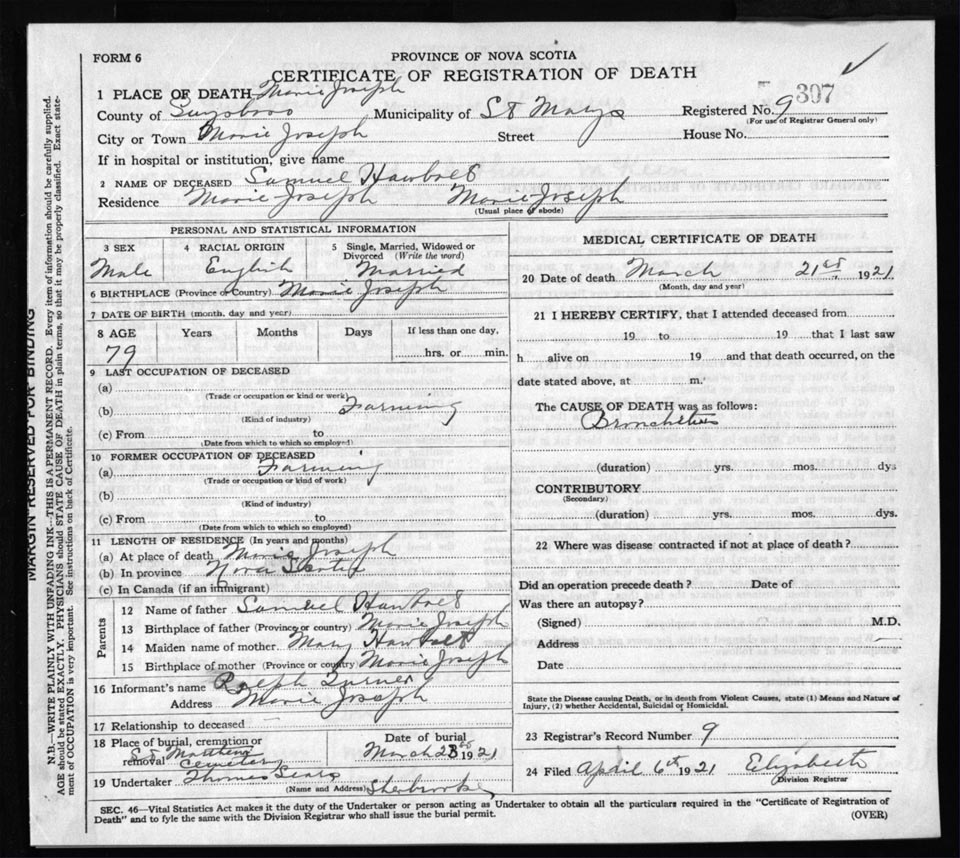 FORM 6
PROVINCE OF NOVA SCOTIA
CERTIFICATE OF REGISTRATION OF DEATH
1 PLACE OF DEATH Marie Joseph
307
County of Guysboro Municipality of St Marys Registered No. 9
(For use of Registrar General only)
City or Town Marie Joseph Street House No.
If in hospital or institution, give name
2 NAME OF DECEASED Samuel Hawbolt
Residence Marie Joseph Marie Joseph
(Usual place of abode)
PERSONAL AND STATISTICAL INFORMATION
3 SEX 4 RACIAL ORIGIN 5 Single, Married, Widowed or Divorced (Write the word)
Male English Married
6 BIRTHPLACE (Province or Country) Marie Joseph
7 DATE OF BIRTH (month, day and year)
8 AGE Years Months Days If less than one day,
79 hrs. or min.
9 LAST OCCUPATION OF DECEASED
(a)
(Trade or occupation or kind or work)
(b) Farming
(Kind of industry)
(c) From to
(Date from which to which so employed)
10 FORMER OCCUPATION OF DECEASED
(a) Farming
(Trade or occupation or kind of work)
(b)
(Kind of industry)
(c) From to
(Date from which to which so employed)
11 LENGTH OF RESIDENCE (In years and months)
(a) At place of death Marie Joseph
(b) In province Nova Scotia
(c) In Canada (if an immigrant)
Parents
12 Name of father Samuel Hawbolt
13 Birthplace of father (Province or country) Marie Joseph
14 Maiden name of mother Mary Hawbolt
15 Birthplace of mother (Province or country) Marie Joseph
16 Informant's name Ralph Turner
Address Marie Joseph
17 Relationship to deceased
18 Place of burial, cremation or removal Date of burial
Cemetery March 23 1921
19 Undertaker Thomas Sears Sherbrooke
(Name and Address)
MEDICAL CERTIFICATE OF DEATH
20 Date of death March 21st 1921
(Month, day and year)
21 I HEREBY CERTIFY, that I attended deceased from
19 to 19 that I last saw
h alive on 19 and that death occurred, on the
date stated above, at m.
The CAUSE OF DEATH was as follows:
Bronchitis
(duration) yrs. mos. dys
CONTRIBUTORY
(Secondary)
(duration) yrs. mos. dys.
22 Where was disease contracted if not at place of death?
Did an operation precede death? Date of
Was there an autopsy?
(Signed) M.D.
Address
Date
State the Disease causing Death, or in death from Violent Causes, state (1) Means and Nature of
Injury, (2) whether Accidental, Suicidal or Homicidal.
23 Registrar's Record Number 9
24 Filed April 6th 1921 Elizabeth
Division Registrar
SEC. 46—Vital Statistics Act makes it the duty of the Undertaker or person acting as Undertaker to obtain all the particulars required in the "Certificate of Registration of
Death" and to fyle the same with the Division Registrar who shall issue the burial permit.
(OVER)
MARGIN RESERVED FOR BINDING
N.B.—WRITE PLAINLY WITH UNFADING INK—THIS IS A PERMANENT RECORD. Every item of information should be carefully supplied.
AGE should be stated EXACTLY. PHYSICIANS should STATE CAUSE OF DEATH in plain terms, so that it may be properly classified. Exact state-
ment of OCCUPATION is very important. See instructions on back of Certificate.